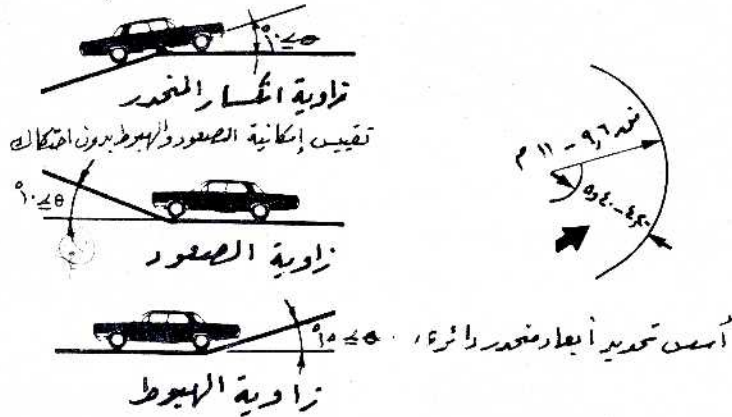 θ ≤ ١٠°
زاوية انكسار المنحدر
تقييس إمكانية الصعود والهبوط بدون احتكاك
θ ≤ ١٠°
زاوية الصعود
θ ≤ ١٥°
زاوية الهبوط
٩,٦ - ١١ م
أسس تحديد أبعاد منحدر دائري